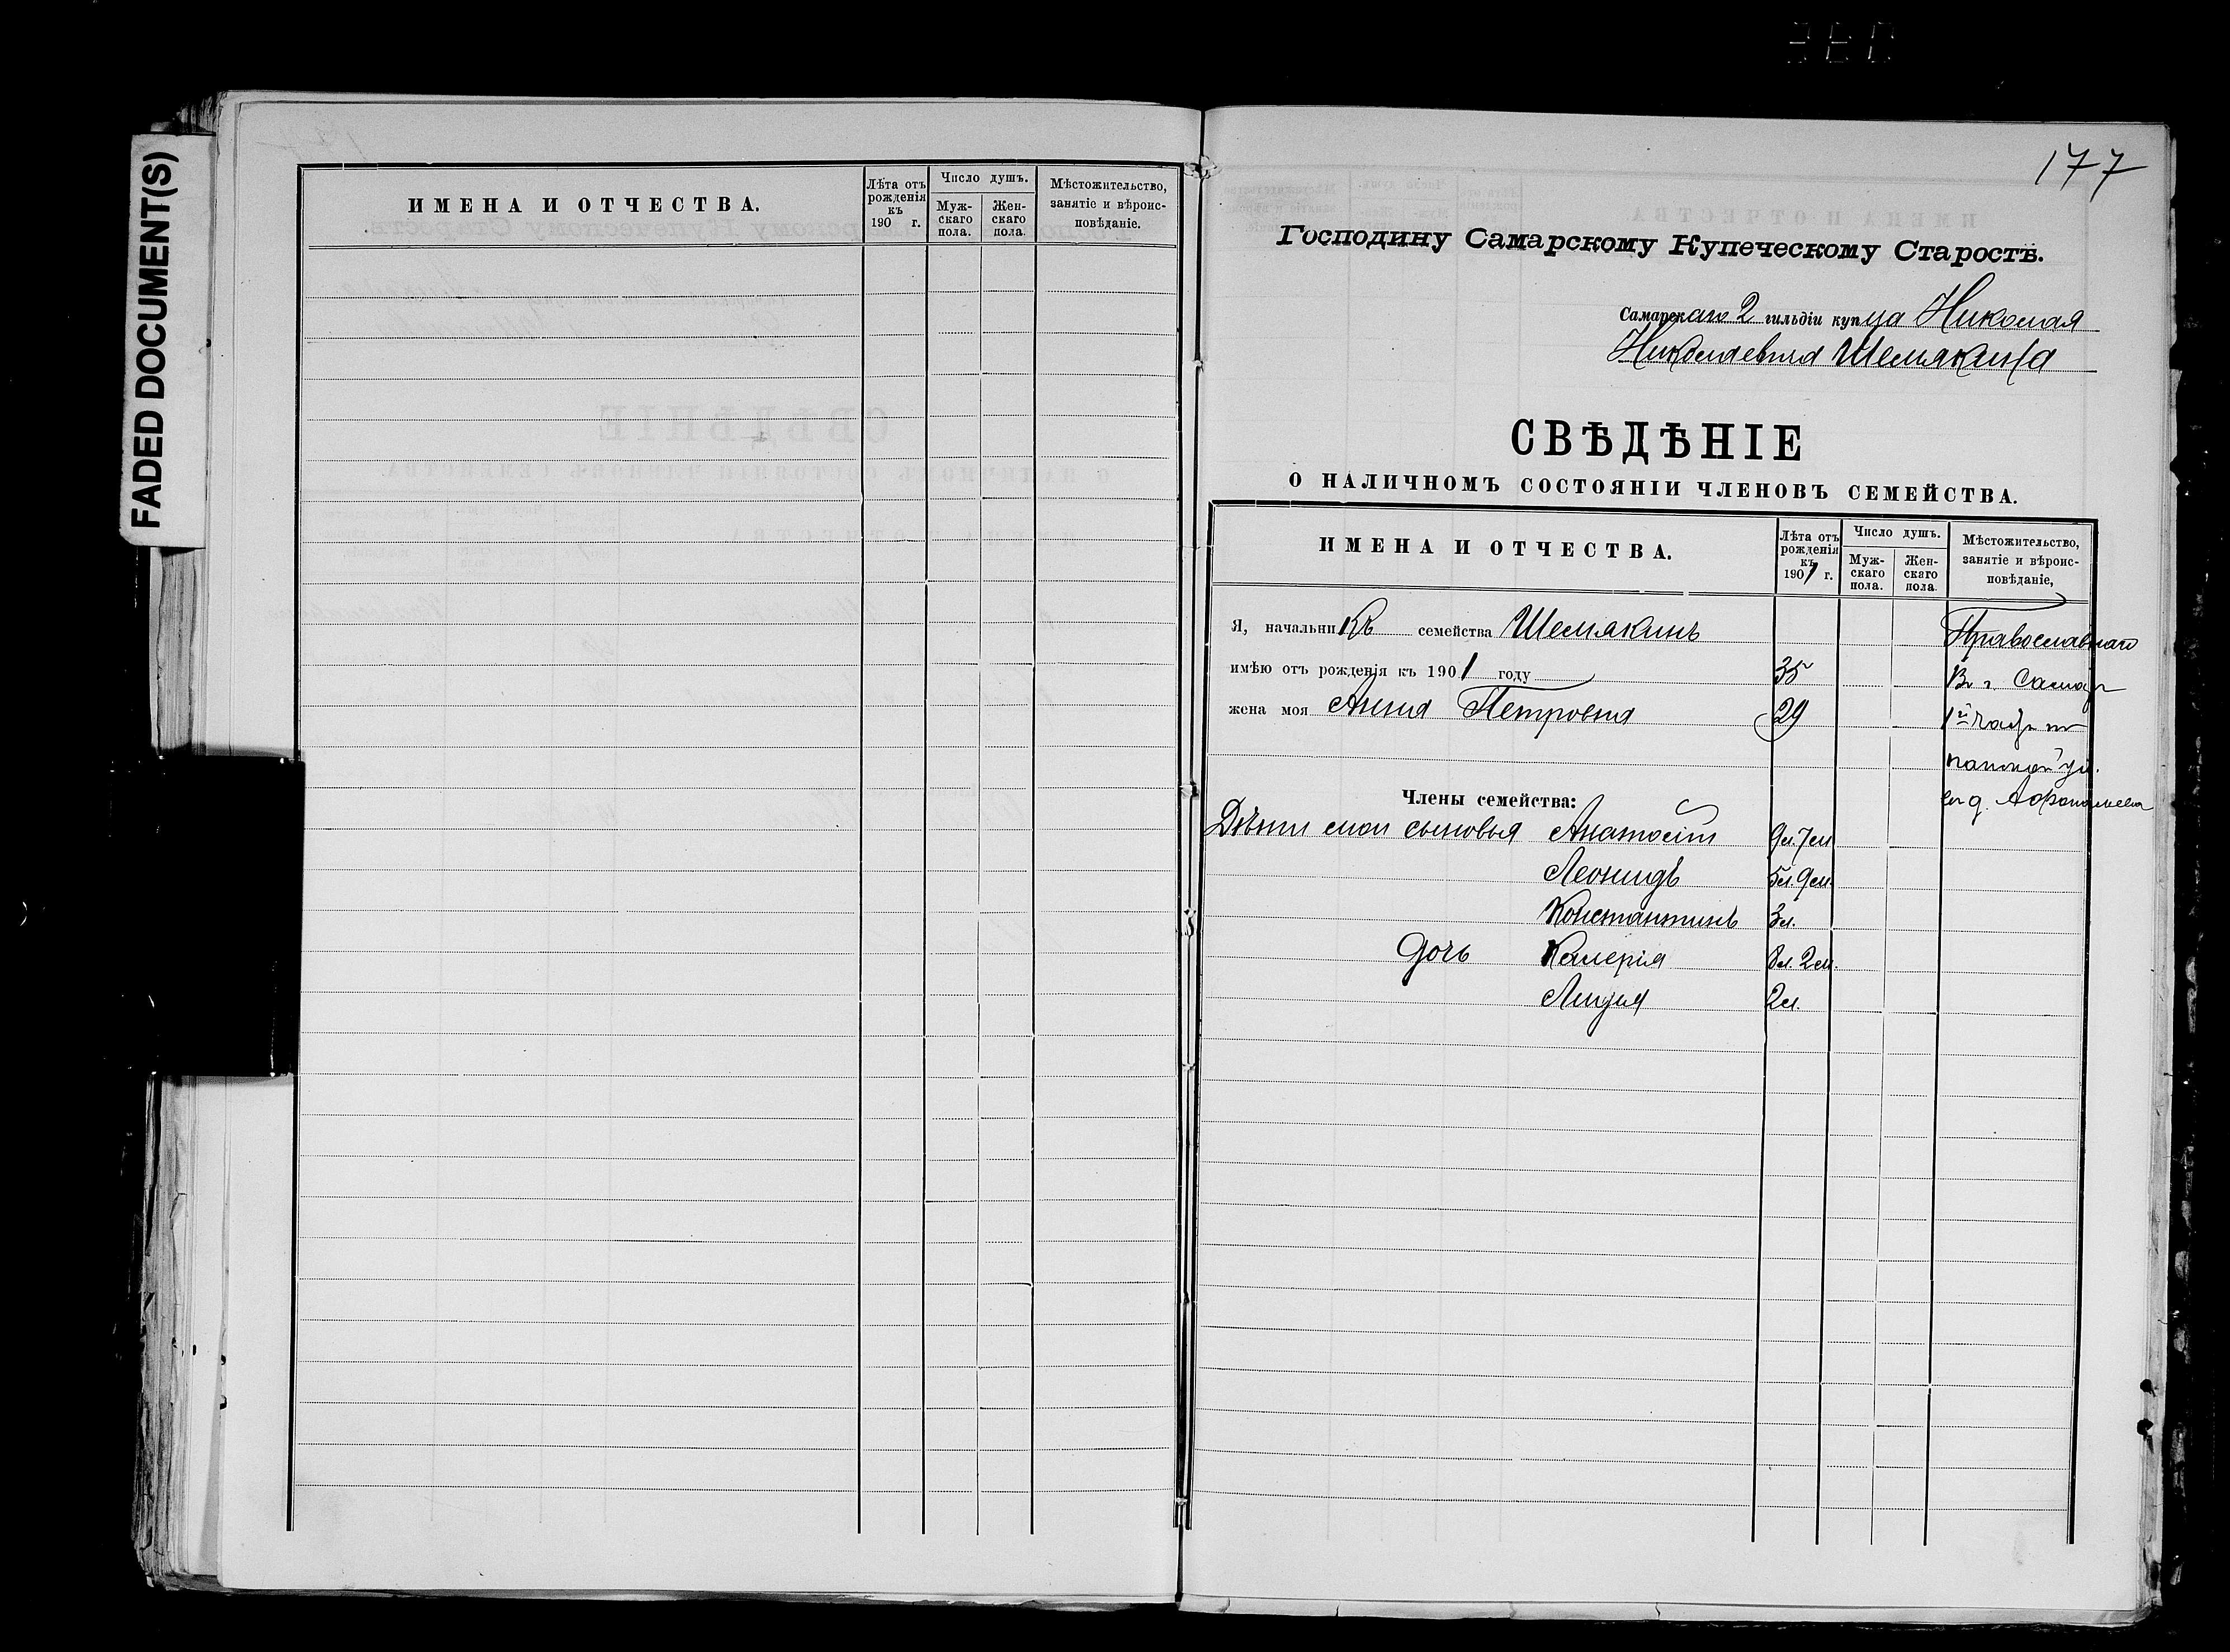 FADED DOCUMENT(S)
ИМЕНА И ОТЧЕСТВА.
Лѣта отъ рожденія къ 190 г.
Число душъ.
Муж-скаго пола.
Жен-скаго пола.
Мѣстожительство, занятіе и вѣроис-повѣданіе.
177
Господину Самарскому Купеческому Старостѣ.
Самарскаго 2 гильдіи купца Николая
Николаевича Шемякина
СВѢДѢНІЕ
О НАЛИЧНОМЪ СОСТОЯНІИ ЧЛЕНОВЪ СЕМЕЙСТВА.
ИМЕНА И ОТЧЕСТВА.
Лѣта отъ рожденія къ 1901 г.
Число душъ.
Муж-скаго пола.
Жен-скаго пола.
Мѣстожительство, занятіе и вѣроис-повѣданіе,
Я, начальникъ семейства Шемякинъ Православнаго
имѣю отъ рожденія къ 1901 году 35 Въ г. Самар
жена моя Анна Петровна 29 1й части по
панской ул.
Члены семейства:
въ д. Афонасьева
Дѣти мои сыновья Анатолій 9л. 7м
Леонидъ 5л. 9м.
Константинъ 3л.
Дочь Калерія 8л. 2м.
Лидія 2л.